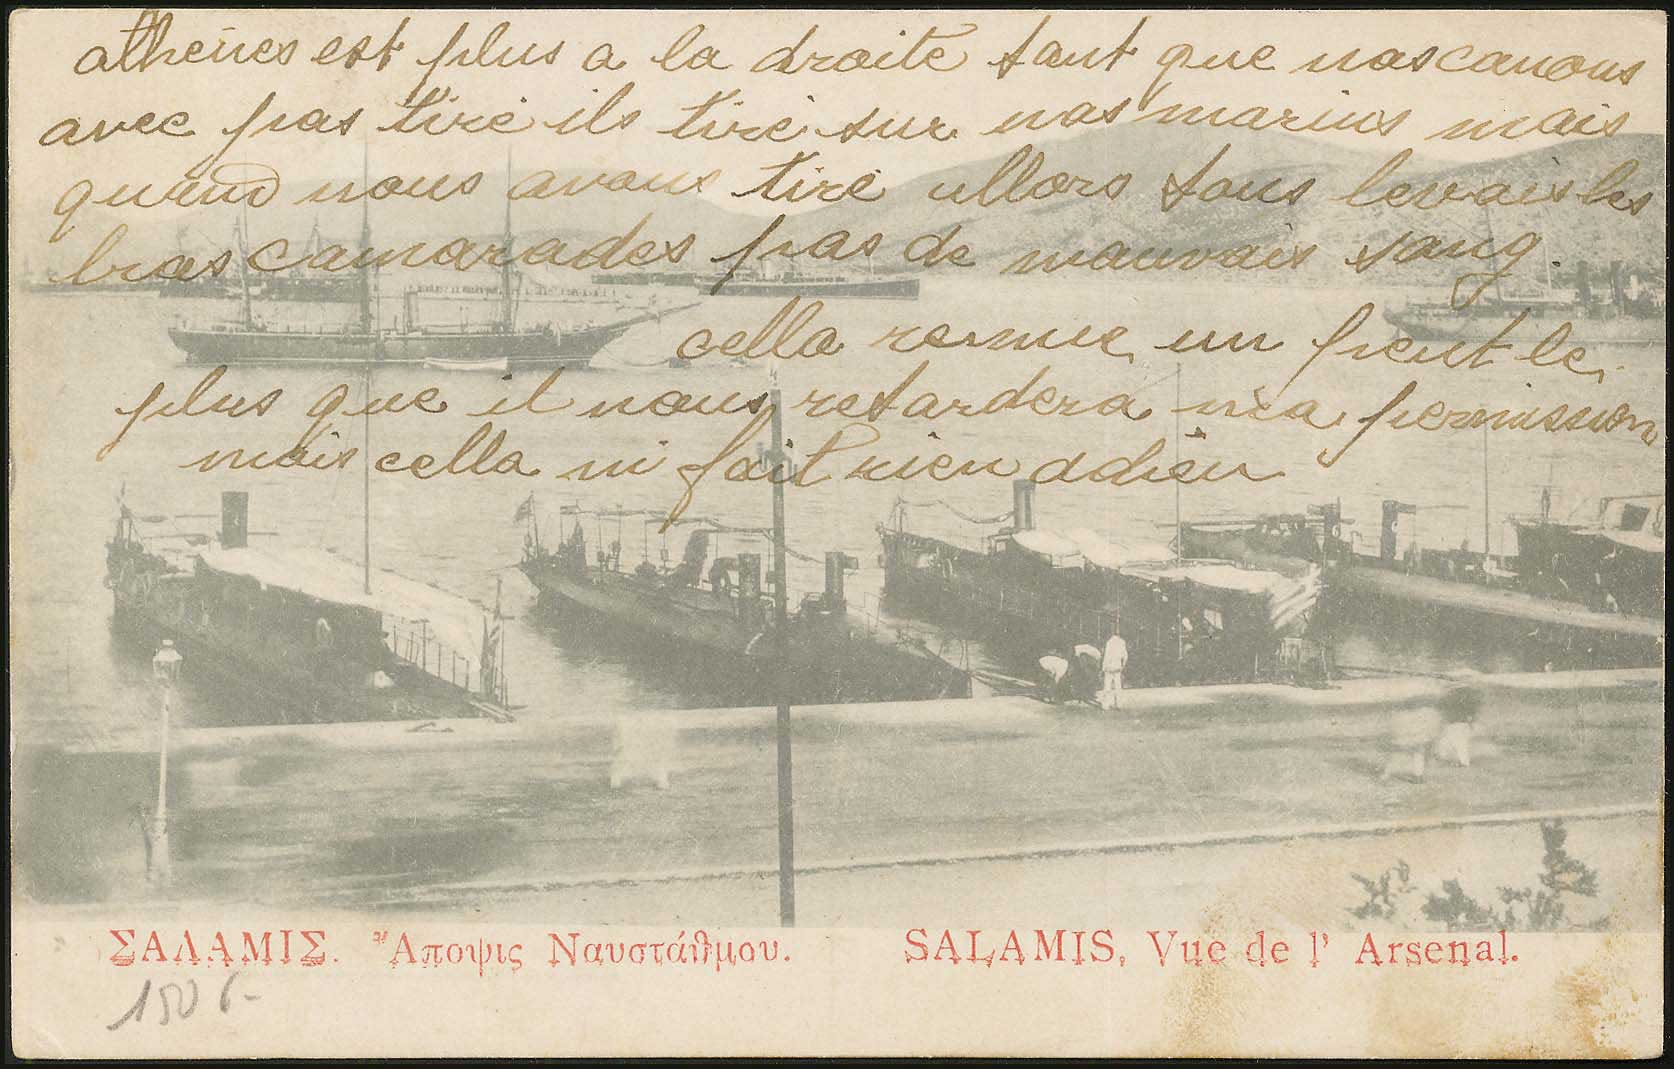 athenes est plus a la droite tant que nos canons
avec pas tiré ils tiré sur nos marins mais
quand nous avons tiré allors tous levais les
bras camarades pas de mauvais sang.
cella remue un peut le
plus que il nous retardera ma permission
mais cella ni fait rien adieu
ΣΑΛΑΜΙΣ. Ἄποψις Ναυστάθμου. SALAMIS, Vue de l' Arsenal.
150 6-